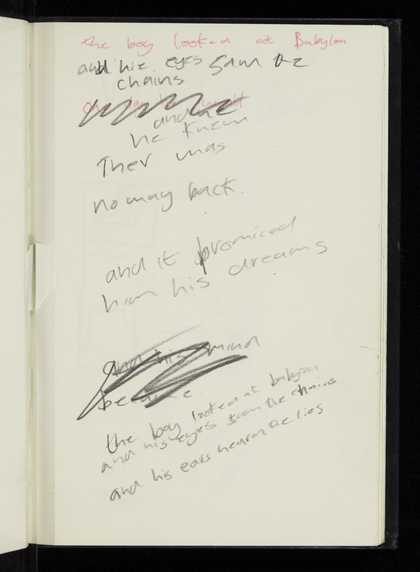 the boy looked at Babylon
and his eyes saw the
chains
and
he knew
Ther was
no way back.
and it promiced
him his dreams
and his mind
became
the boy looked at babylon
and his eyes saw the chains
and his ears hearn the lies